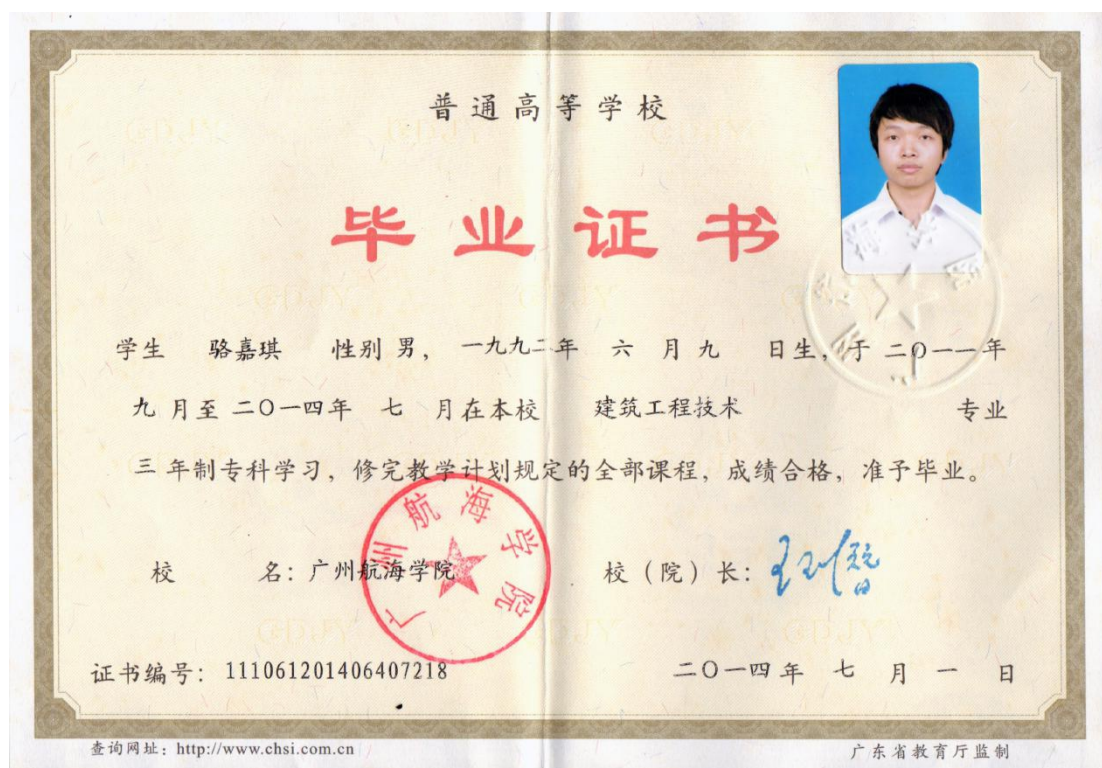 普通高等学校
毕业证书
学生 骆嘉琪 性别 男, 一九九二年 六 月 九 日生,于 二〇一一年
九 月至 二〇一四年 七 月在本校 建筑工程技术 专业
三 年制专科学习,修完教学计划规定的全部课程,成绩合格,准予毕业。
广州航海学院
校 名:广州航海学院 校(院)长:
证书编号:111061201406407218 二〇一四年 七 月 一 日
查询网址:http://www.chsi.com.cn 广东省教育厅监制